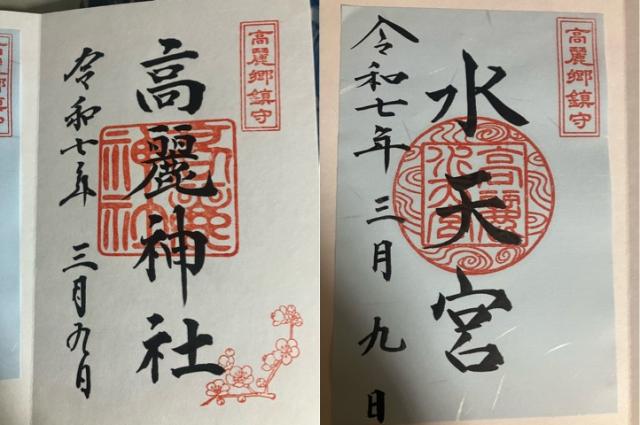 高麗郷鎮守
高麗神社
令和七年 三月九日
高麗神社
高麗郷鎮守
水天宮
令和七年 三月 九 日
高麗水天宮